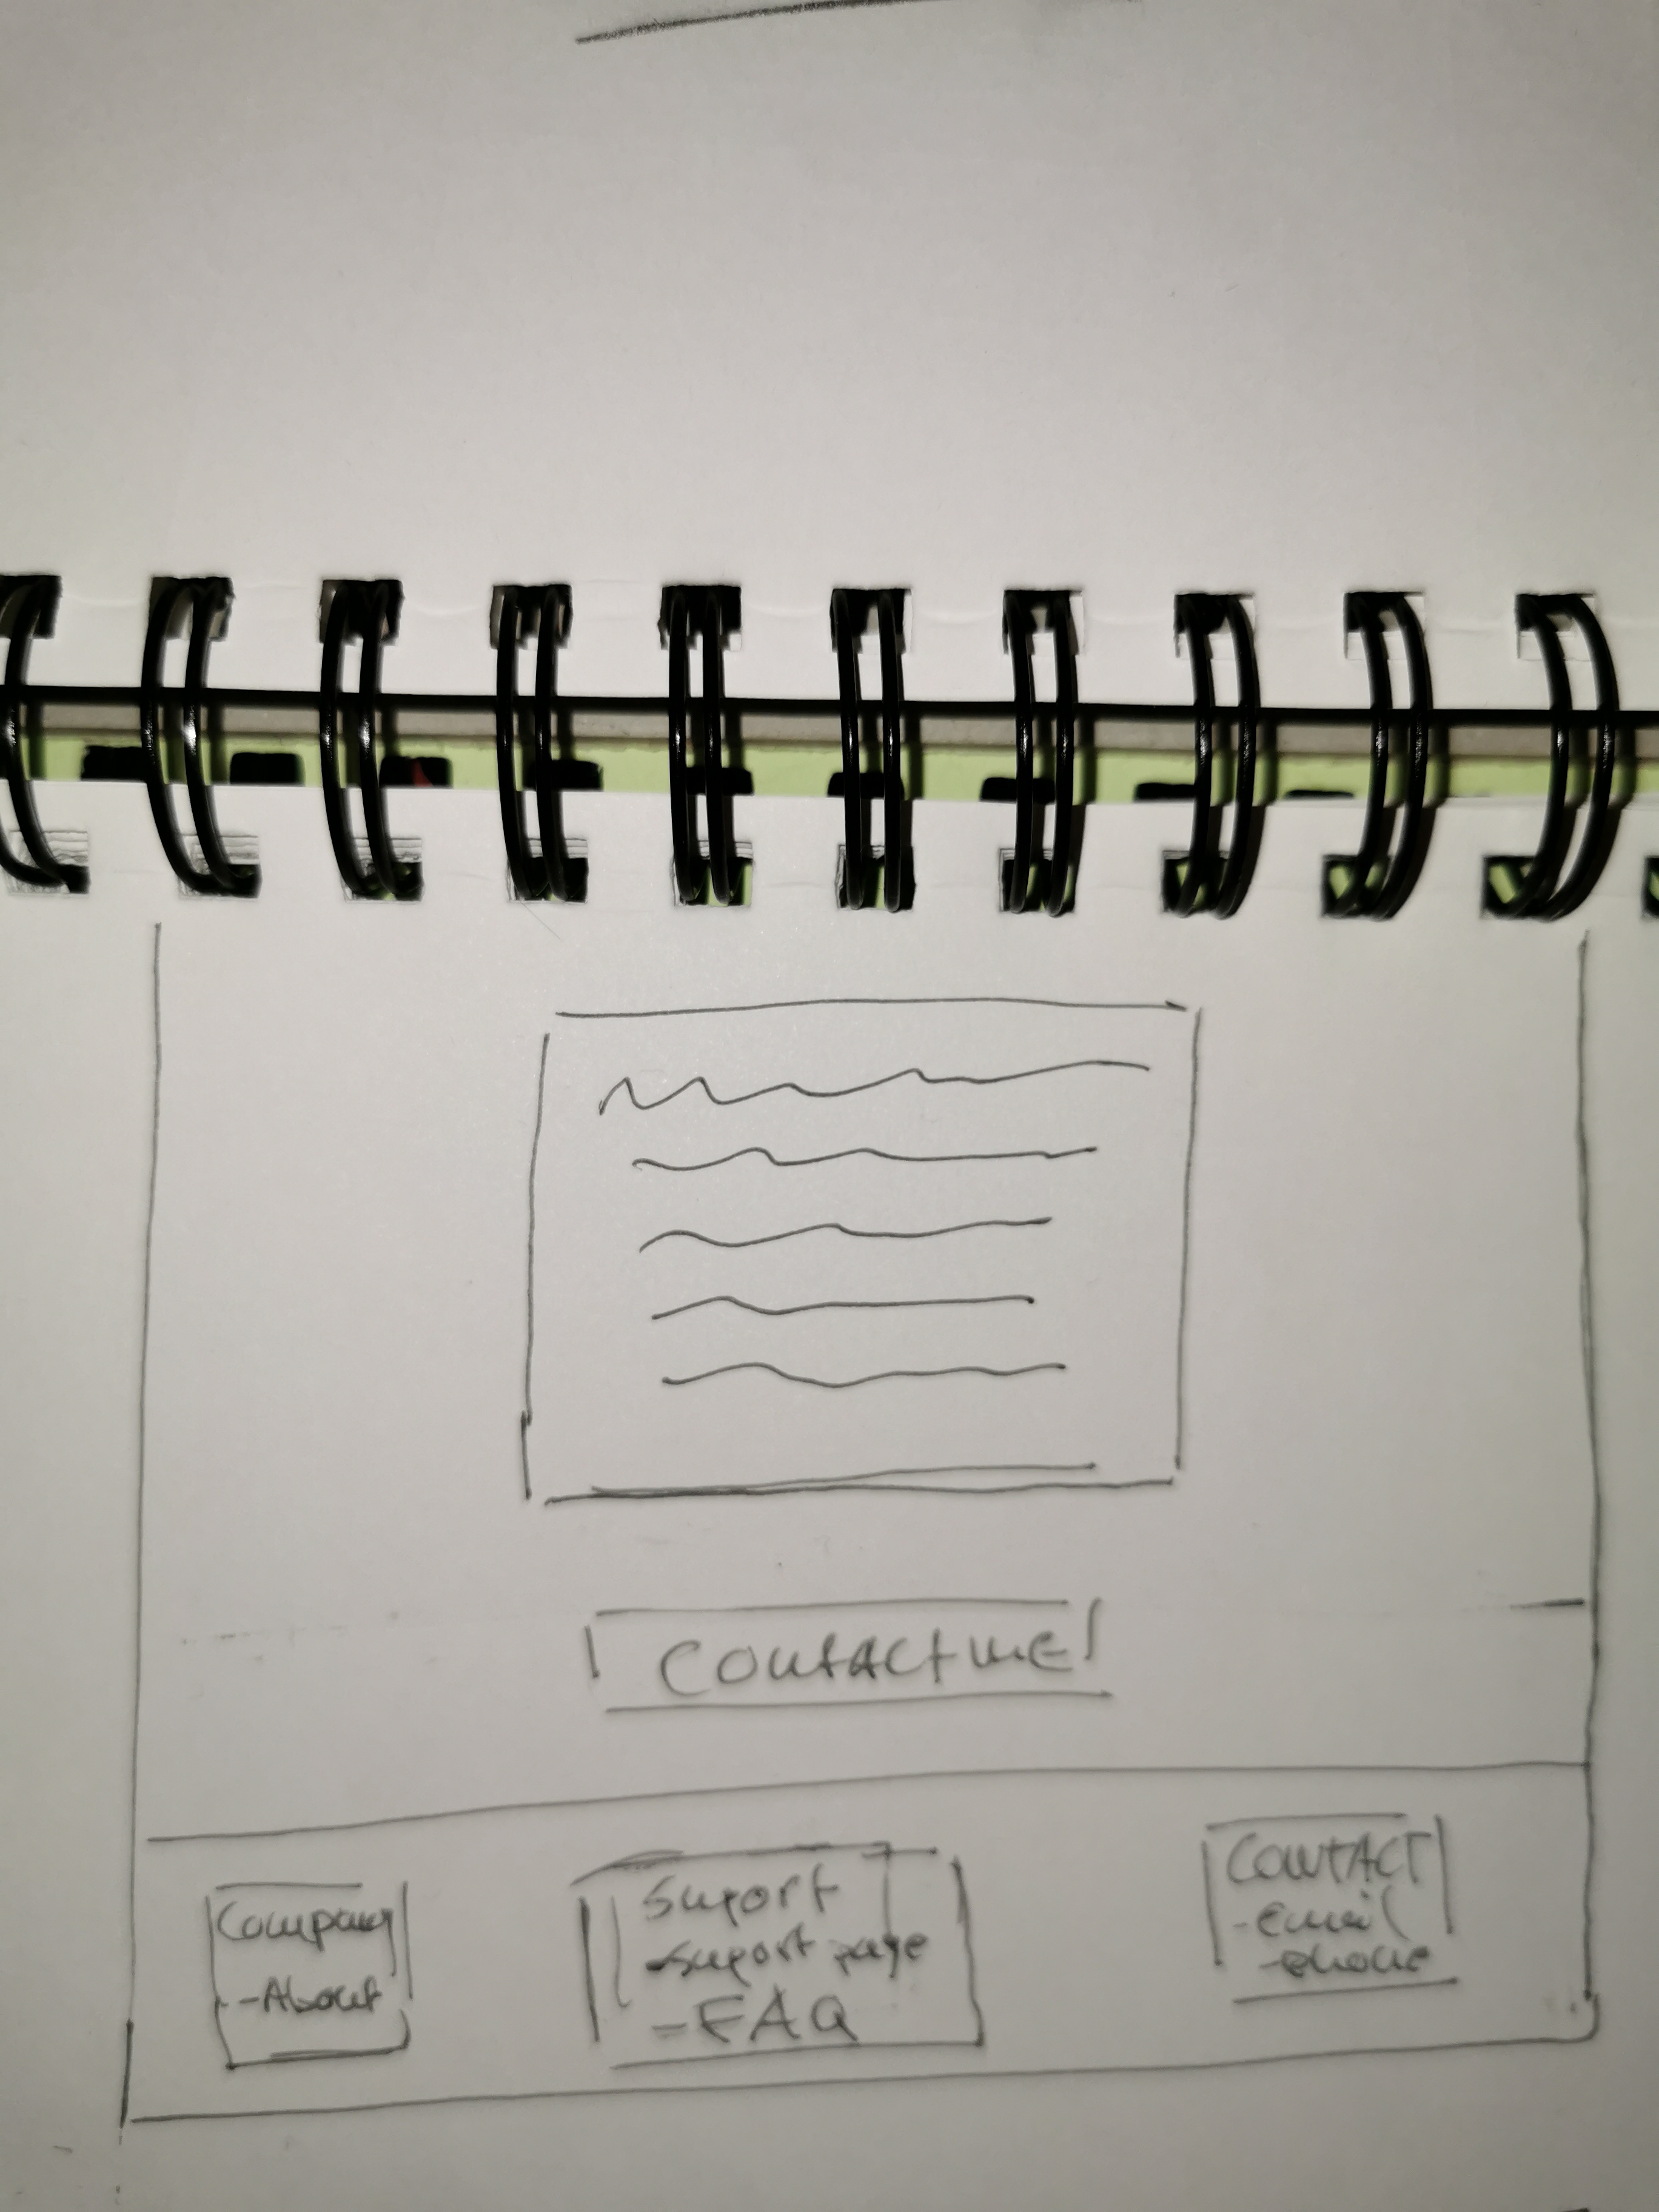 CONTACT ME
Company
-About
Suport
-Suport page
-FAQ
CONTACT
-email
-phone